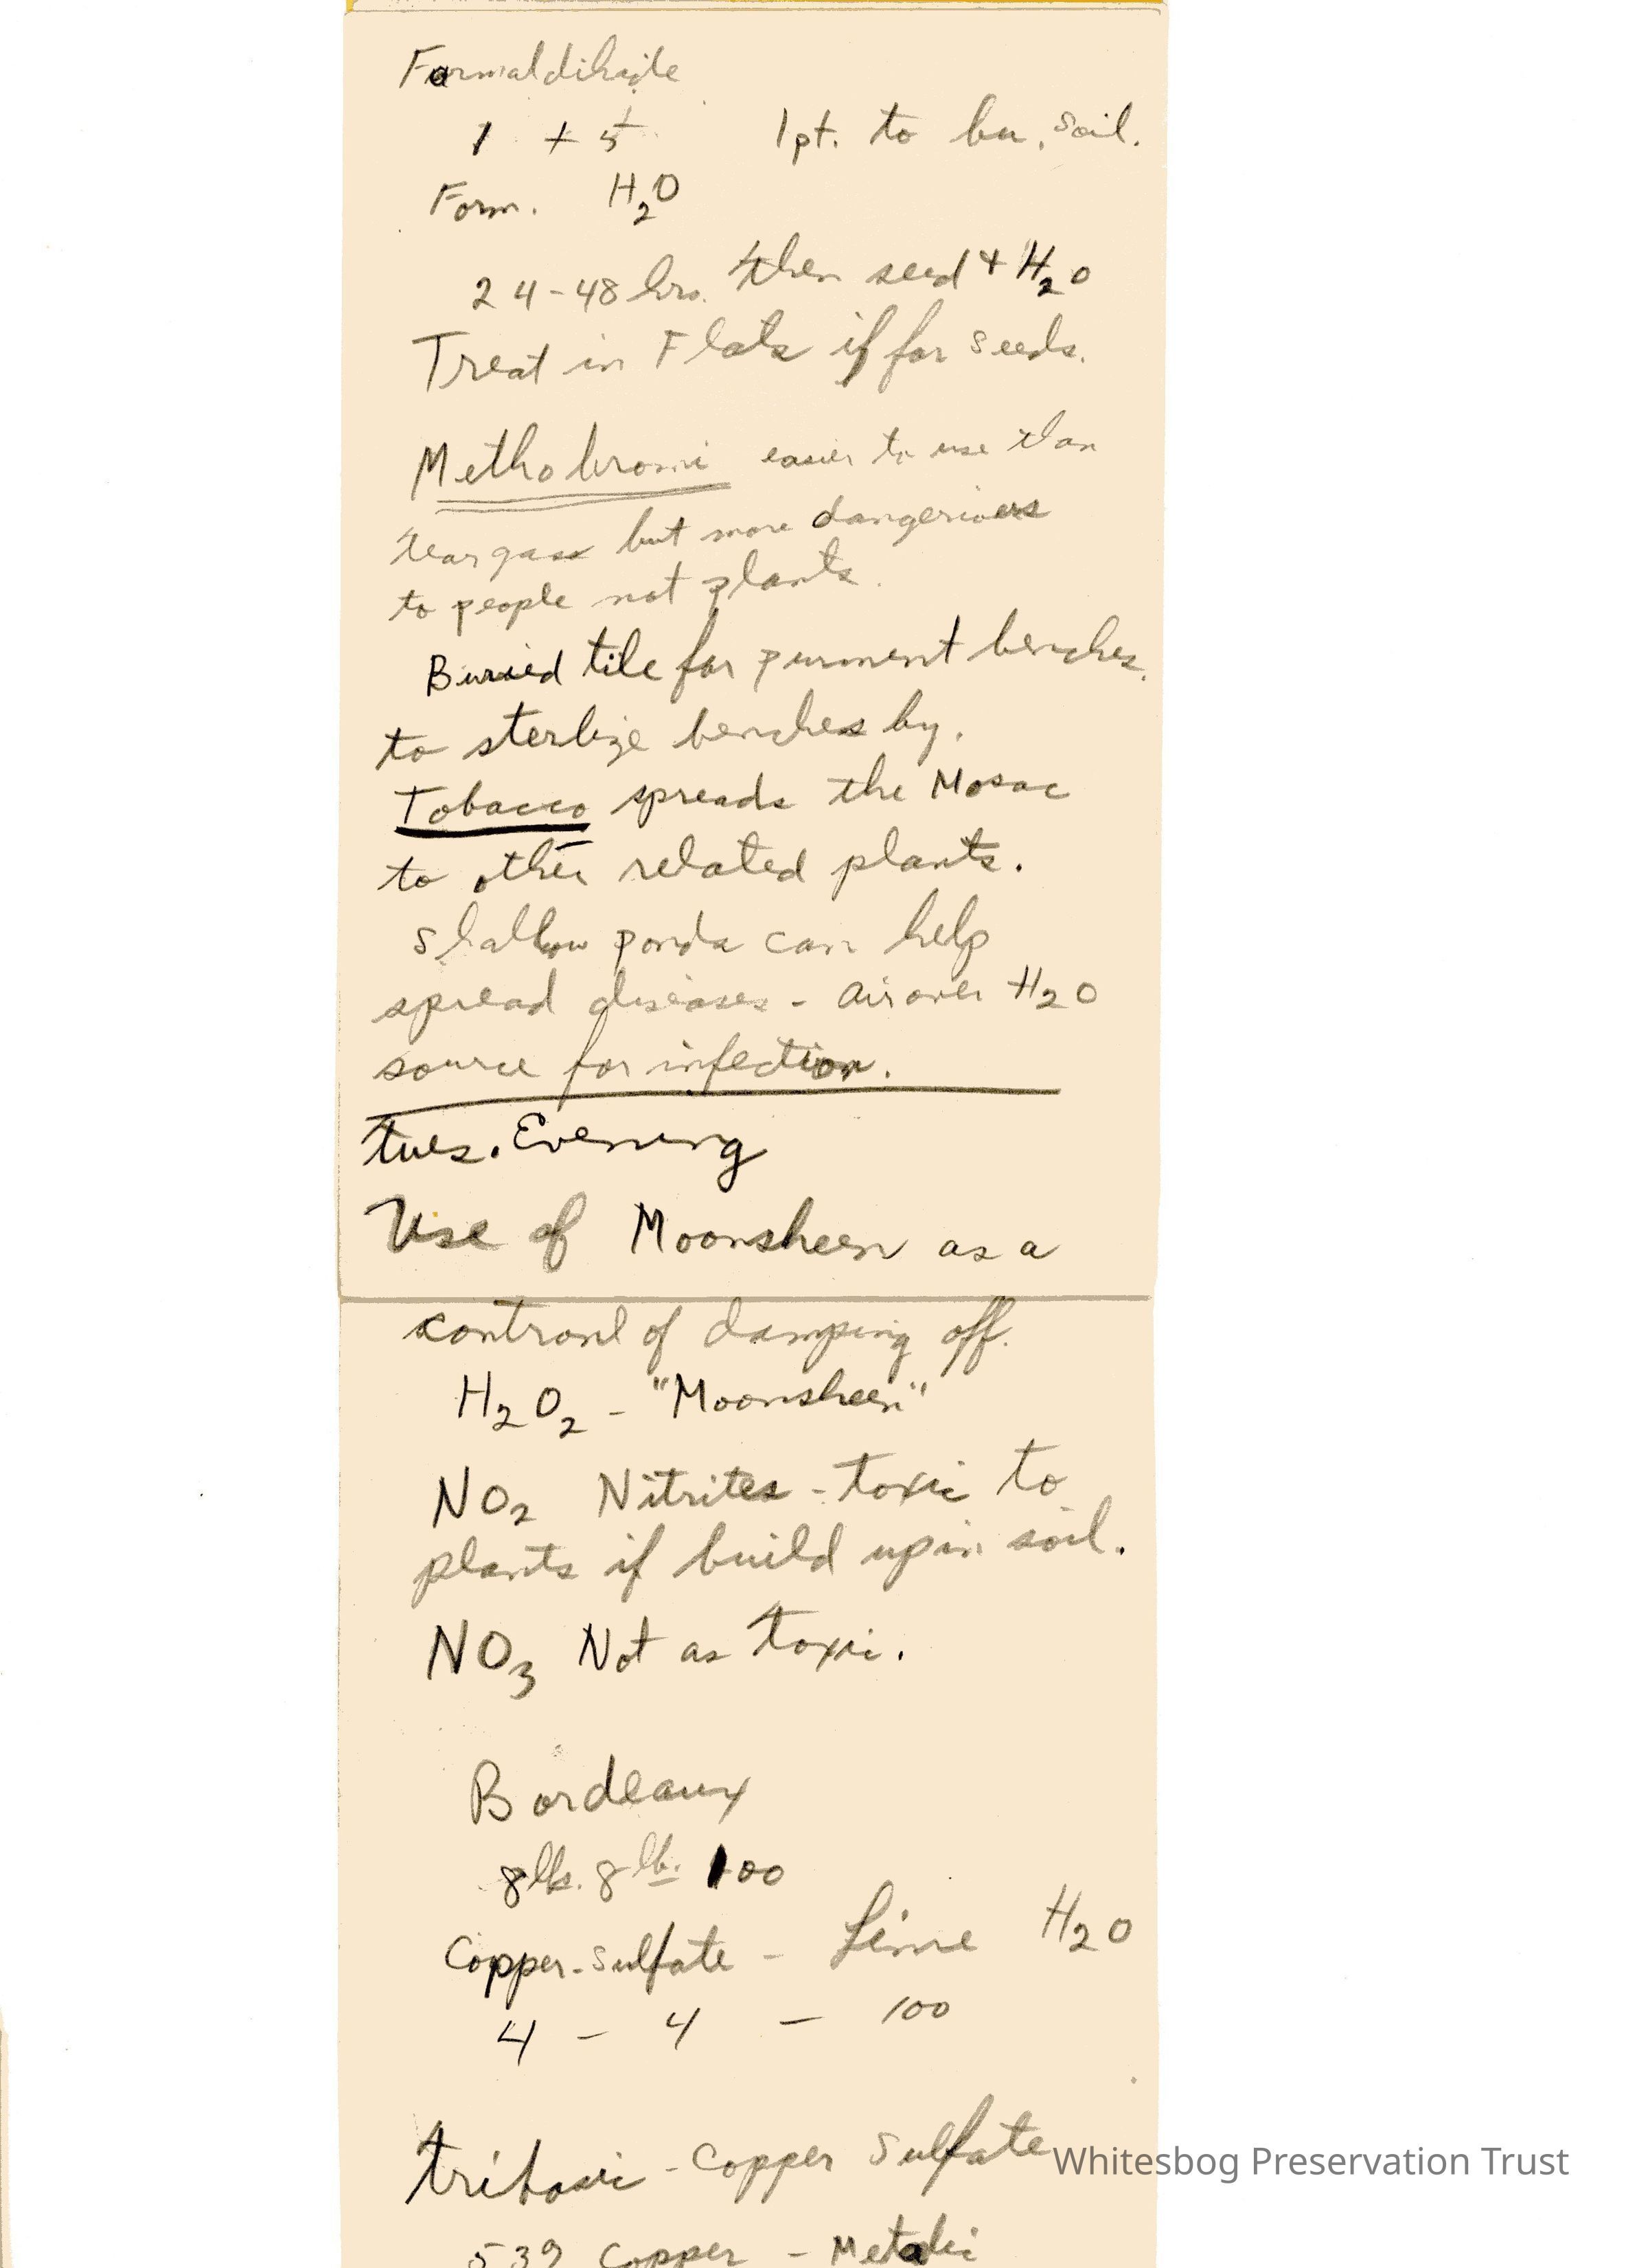 Formaldihide
1 + 5 1 pt. to bu. soil.
Form. H2O
24-48 hrs. then seed + H2O
Treat in Flats if for seeds.
Methobromi easier to use than
tear gass but more dangerious
to people not plants.
Buried tile for purment benches.
to sterlize benches by.
Tobacco spreads the Mosac
to other related plants.
Shallow ponds can help
spread diseases - Air over H2O
source for infection.
Tues. Evening
Use of Moonsheen as a
controul of damping off.
H2O2 - "Moonsheen"
NO2 Nitrites - toxic to
plants if build up in soil.
NO3 Not as toxic.
Bordeaux
8 lbs. 8 lb. 100
Copper-Sulfate - Lime H2O
4 - 4 - 100
tribasic - Copper Sulfate
539 Copper - Metalic
Whitesbog Preservation Trust